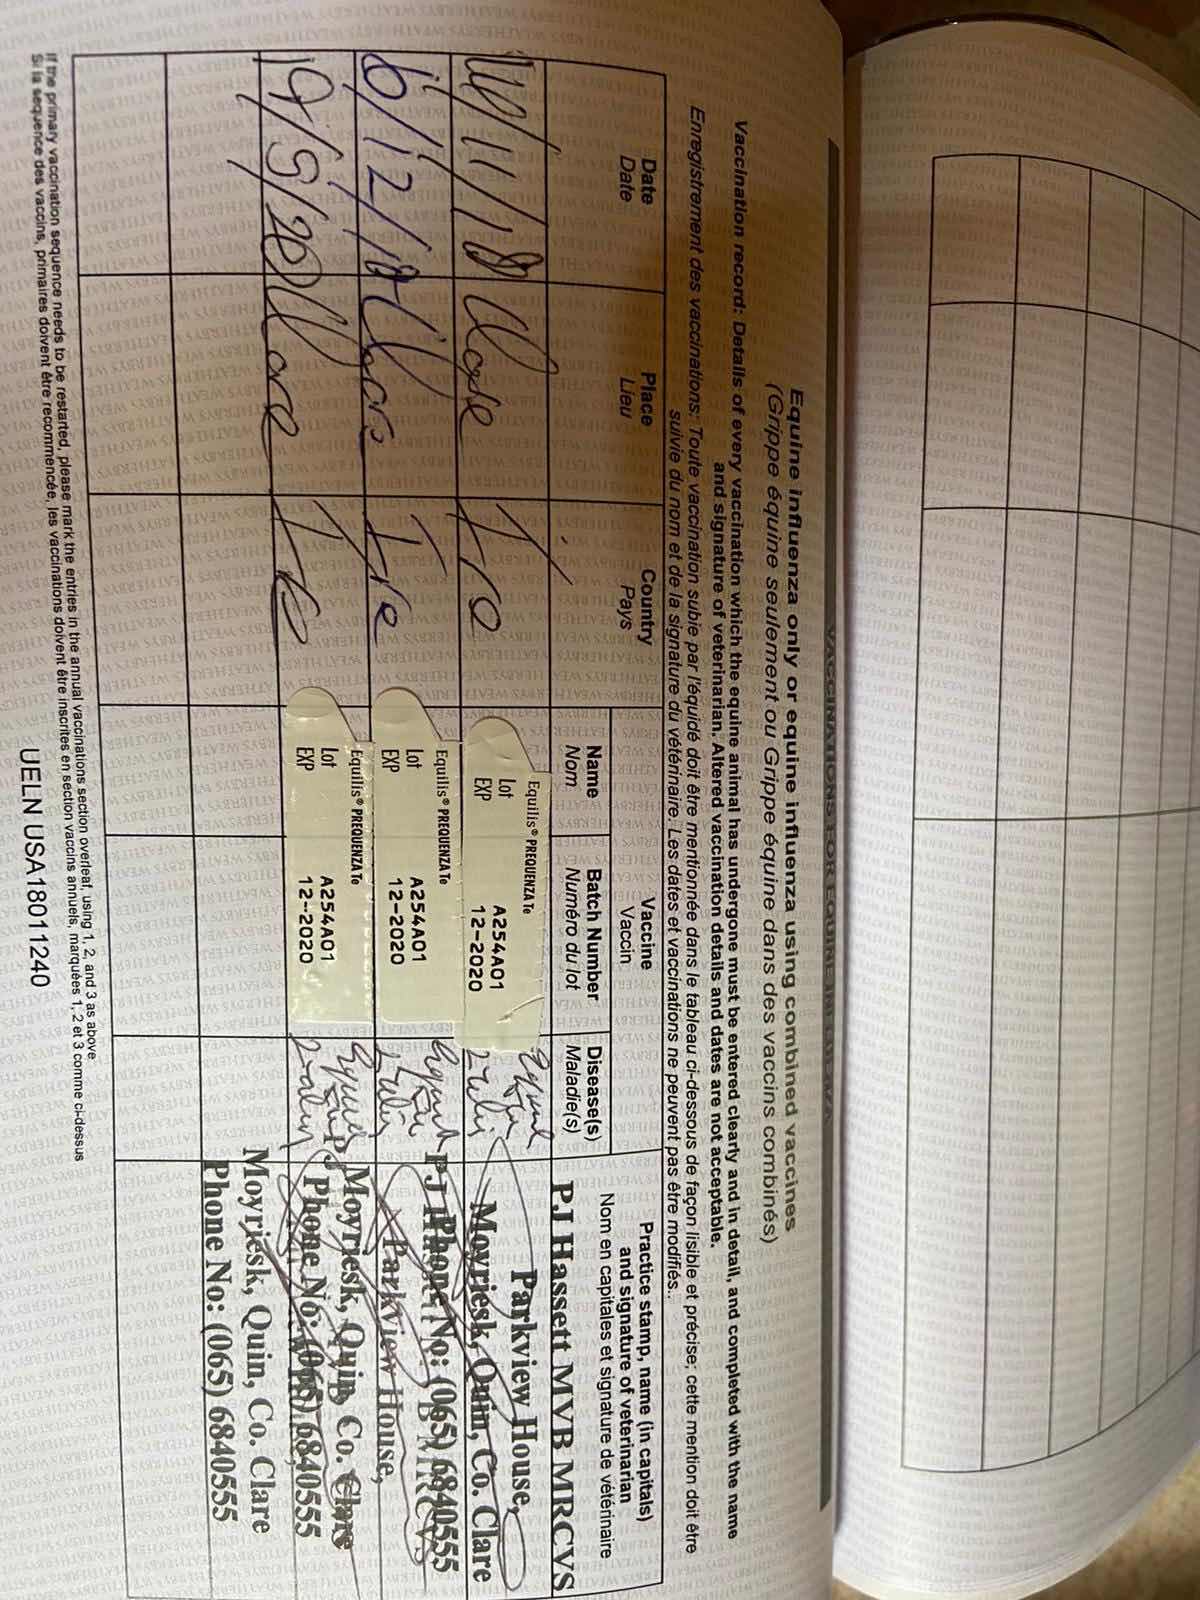 VACCINATIONS FOR EQUINE INFLUENZA
Equine influenza only or equine influenza using combined vaccines
(Grippe équine seulement ou Grippe équine dans des vaccins combinés)
Vaccination record: Details of every vaccination which the equine animal has undergone must be entered clearly and in detail, and completed with the name
and signature of veterinarian. Altered vaccination details and dates are not acceptable.
Enregistrement des vaccinations: Toute vaccination subie par l'équidé doit être mentionnée dans le tableau ci-dessous de façon lisible et précise; cette mention doit être
suivie du nom et de la signature du vétérinaire. Les dates et vaccinations ne peuvent pas être modifiés..
Date
Date
Place
Lieu
Country
Pays
Vaccine
Vaccin
Name
Nom
Batch Number
Numéro du lot
Disease(s)
Maladie(s)
Practice stamp, name (in capitals)
and signature of veterinarian
Nom en capitales et signature de vétérinaire
/11/18 Clare Ire
Equilis® PREQUENZA Te
Lot A254A01
EXP 12-2020
PJ Hassett MVB MRCVS
Parkview House,
Moyriesk, Quin, Co. Clare
Phone No: (065) 6840555
6/12/18 Clare Ire
Equilis® PREQUENZA Te
Lot A254A01
EXP 12-2020
Parkview House,
Moyriesk, Quin, Co. Clare
Phone No: (065) 6840555
19/5/20 Clare Ire
Equilis® PREQUENZA Te
Lot A254A01
EXP 12-2020
Moyriesk, Quin, Co. Clare
Phone No: (065) 6840555
If the primary vaccination sequence needs to be restarted, please mark the entries in the annual vaccinations section overleaf, using 1, 2, and 3 as above
Si la sequence des vaccins, primaires doivent être recommencée, les vaccinations doivent être inscrites en section vaccins annuels, marquées 1, 2 et 3 comme ci-dessus
UELN USA18011240